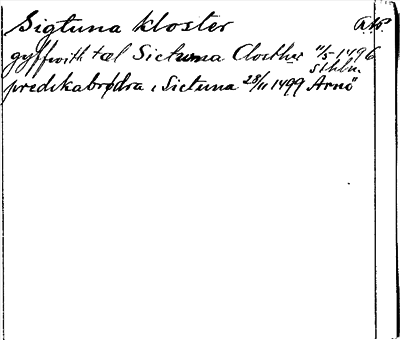 Sigtuna kloster RAP.
gyffwith tæl Sictuna Closther 11/5 1496
Sthlm.
predikabrödra i Sictuna 28/11 1499 Arnö